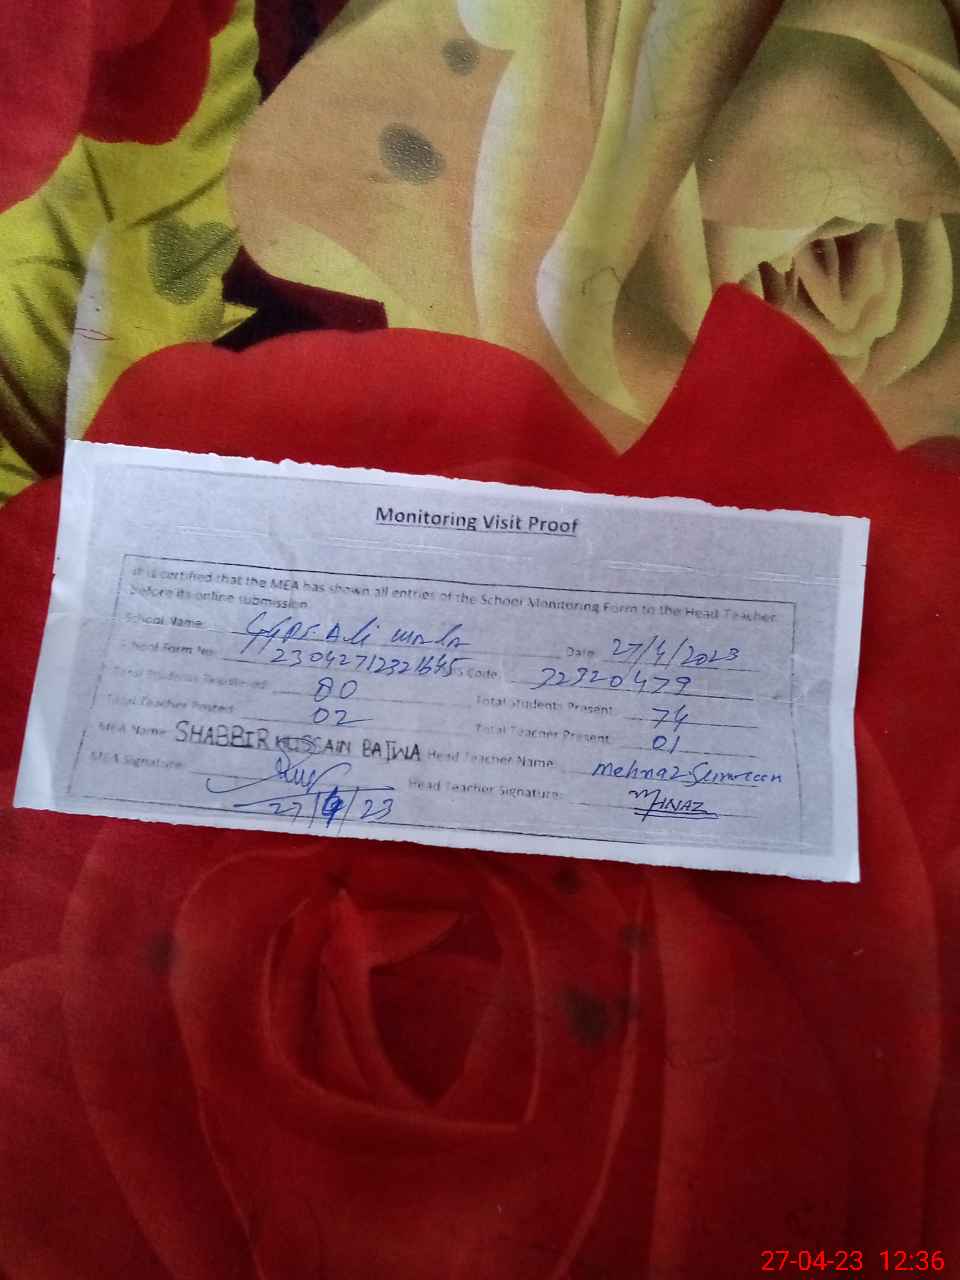 Monitoring Visit Proof
It is certified that the MEA has shown all entries of the School Monitoring Form to the Head Teacher
before its online submission.
School Name: GGPS Ali wala Date: 27/4/2023
School Form No: Code: 32320479
Total Students Registered: 80 Total Students Present: 74
Total Teacher Posted: 02 Total Teacher Present: 01
MEA Name: SHABBIR HUSSAIN BAJWA Head Teacher Name: Mehnaz
MEA Signature: Head Teacher Signature: MHNAZ
27/4/23
27-04-23 12:36